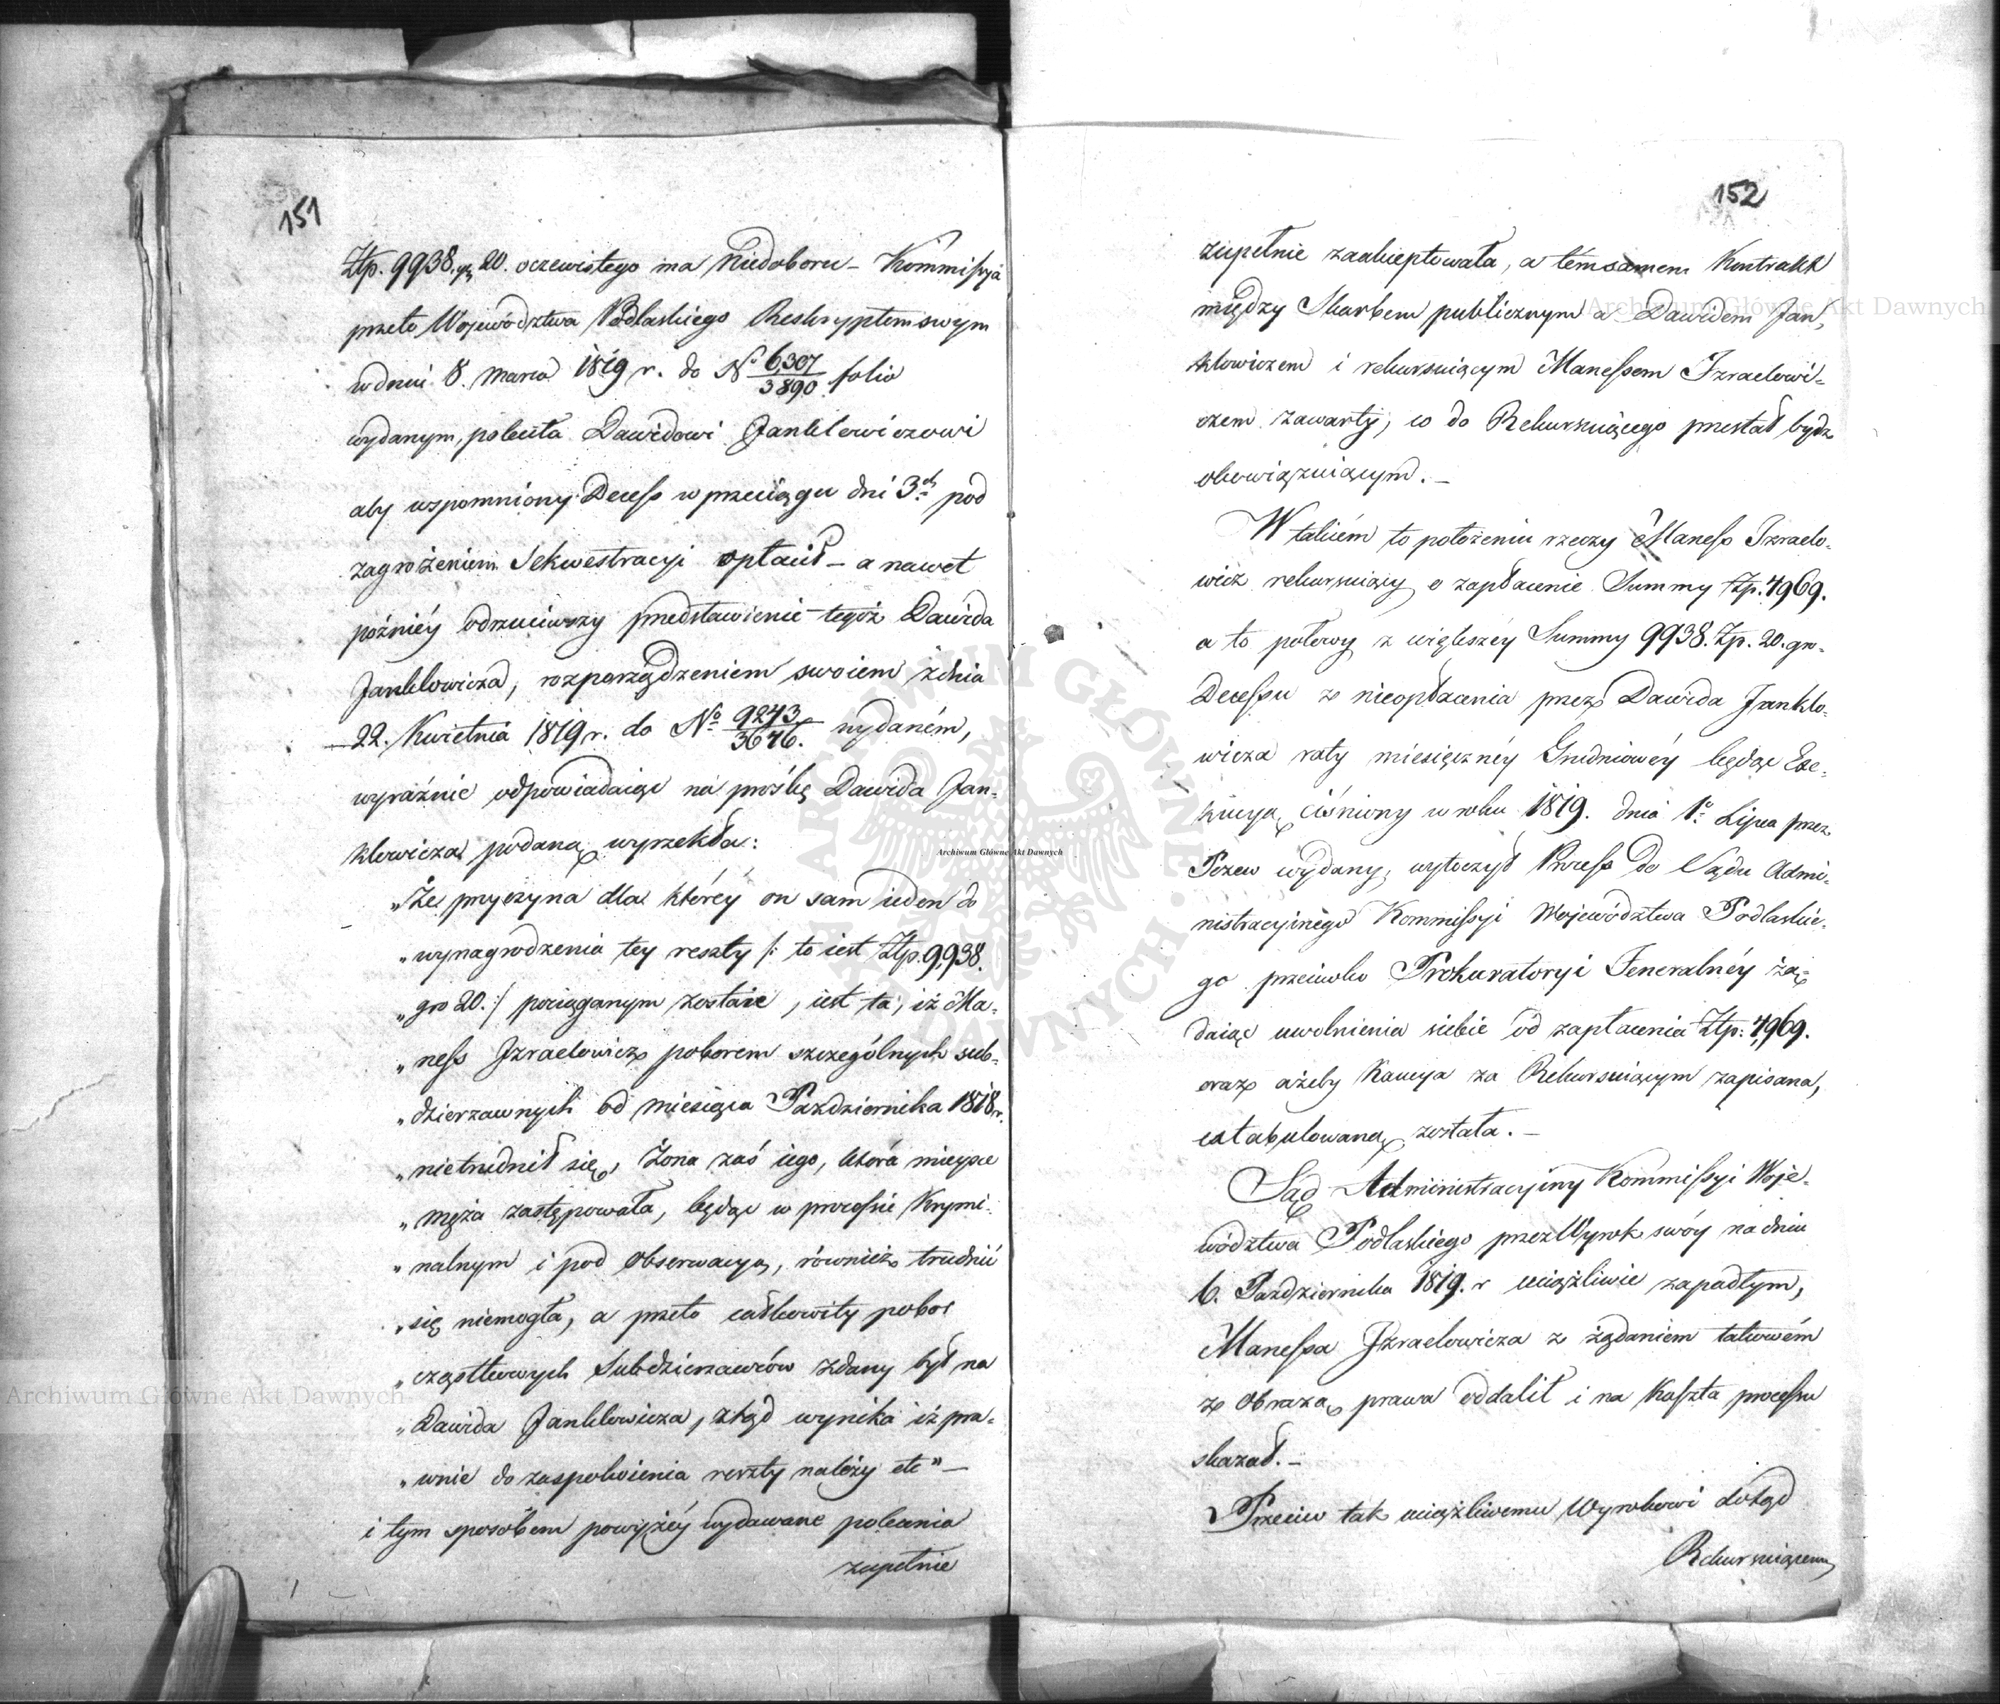 151
Złp. 9938. gr. 20. oczewistego ma Niedoboru – Kommissya
przeto Województwa Podlaskiego Reskryptem swym
w dniu 8. Marca 1819 r. do No 6,307/3890 folio
wydanym, poleciła Dawidowi Janklowiczowi
aby wspomniony Decess w przeciągu dni 3ch pod
zagrożeniem Sekwestracyi opłacił – a nawet
późniéy odrzuciwszy przedstawienie tegoż Dawida
Janklowicza, rozporządzeniem swoiem z dnia
22. Kwietnia 1819 r. do No 9243/3646. wydaném,
wyraźnie odpowiadaiąc na prośbę Dawida Jan-
klowicza podaną wyrzekła:
„Że przyczyna dla któréy on sam ieden do
„wynagrodzenia tey reszty /: to iest Złp. 9,938.
„gro 20. :/ pociąganym zostaie, iest ta, iż Ma-
„ness Izraelowicz poborem szczególnych sub-
„dzierzawnych od miesiąca Października 1818 r.
„nietrudnił się, Żona zaś iego, która mieysce
„męża zastępowała, będąc w processie Krymi-
„nalnym i pod Obserwacyą, również trudnić
„się niemogła, a przeto całkowity pobor
„cząstkowych Subdzierzawców zdany był na
„Dawida Janklowicza, ztąd wynika iż pra-
„wnie do zaspokoienia reszty należy etc” –
i tym sposobem powyżéy wydawane polecenia
zupełnie
152
zupełnie zaakceptowała, a témsamem Kontrakt
między Skarbem publicznym a Dawidem Jan-
klowiczem i rekursuiącym Manessem Izraelowi-
czem zawarty, co do Rekursuiącego przestał bydz
obowiązuiącym. –
W takiém to położeniu rzeczy Maness Izraelo-
wicz rekursuiący o zapłacenie Summy Złp. 4969.
a to połowy z większéy Summy 9938. Złp. 20. gro.
Decessu z nieopłacania przez Dawida Janklo-
wicza raty miesięcznéy Grudniowéy będąc Exe-
kucyą ciśniony w roku 1819. dnia 1o Lipca przez
Pozew wydany, wytoczył Process do Sądu Admi-
nistracyinego Kommissyi Województwa Podlaskie-
go przeciwko Prokuratoryi Generalnéy żą-
daiąc uwolnienia siebie od zapłacenia Złp: 4,969.
oraz ażeby Kaucya za Rekursuiącym zapisana,
extabulowaną została. –
Sąd Administracyiny Kommissyi Woje-
wództwa Podlaskiego przez Wyrok swóy na dniu
6. Października 1819. r uciążliwie zapadłym,
Manessa Izraelowicza z żądaniem takowém
z Obrazą prawa oddalił i na Koszta processu
skazał. –
Przeciw tak uciążliwemu Wyrokowi dotąd
Rekursuiącemu
Archiwum Główne Akt Dawnych
Archiwum Główne Akt Dawnych
Archiwum Główne Akt Dawnych
ARCHIWUM GŁÓWNE AKT DAWNYCH